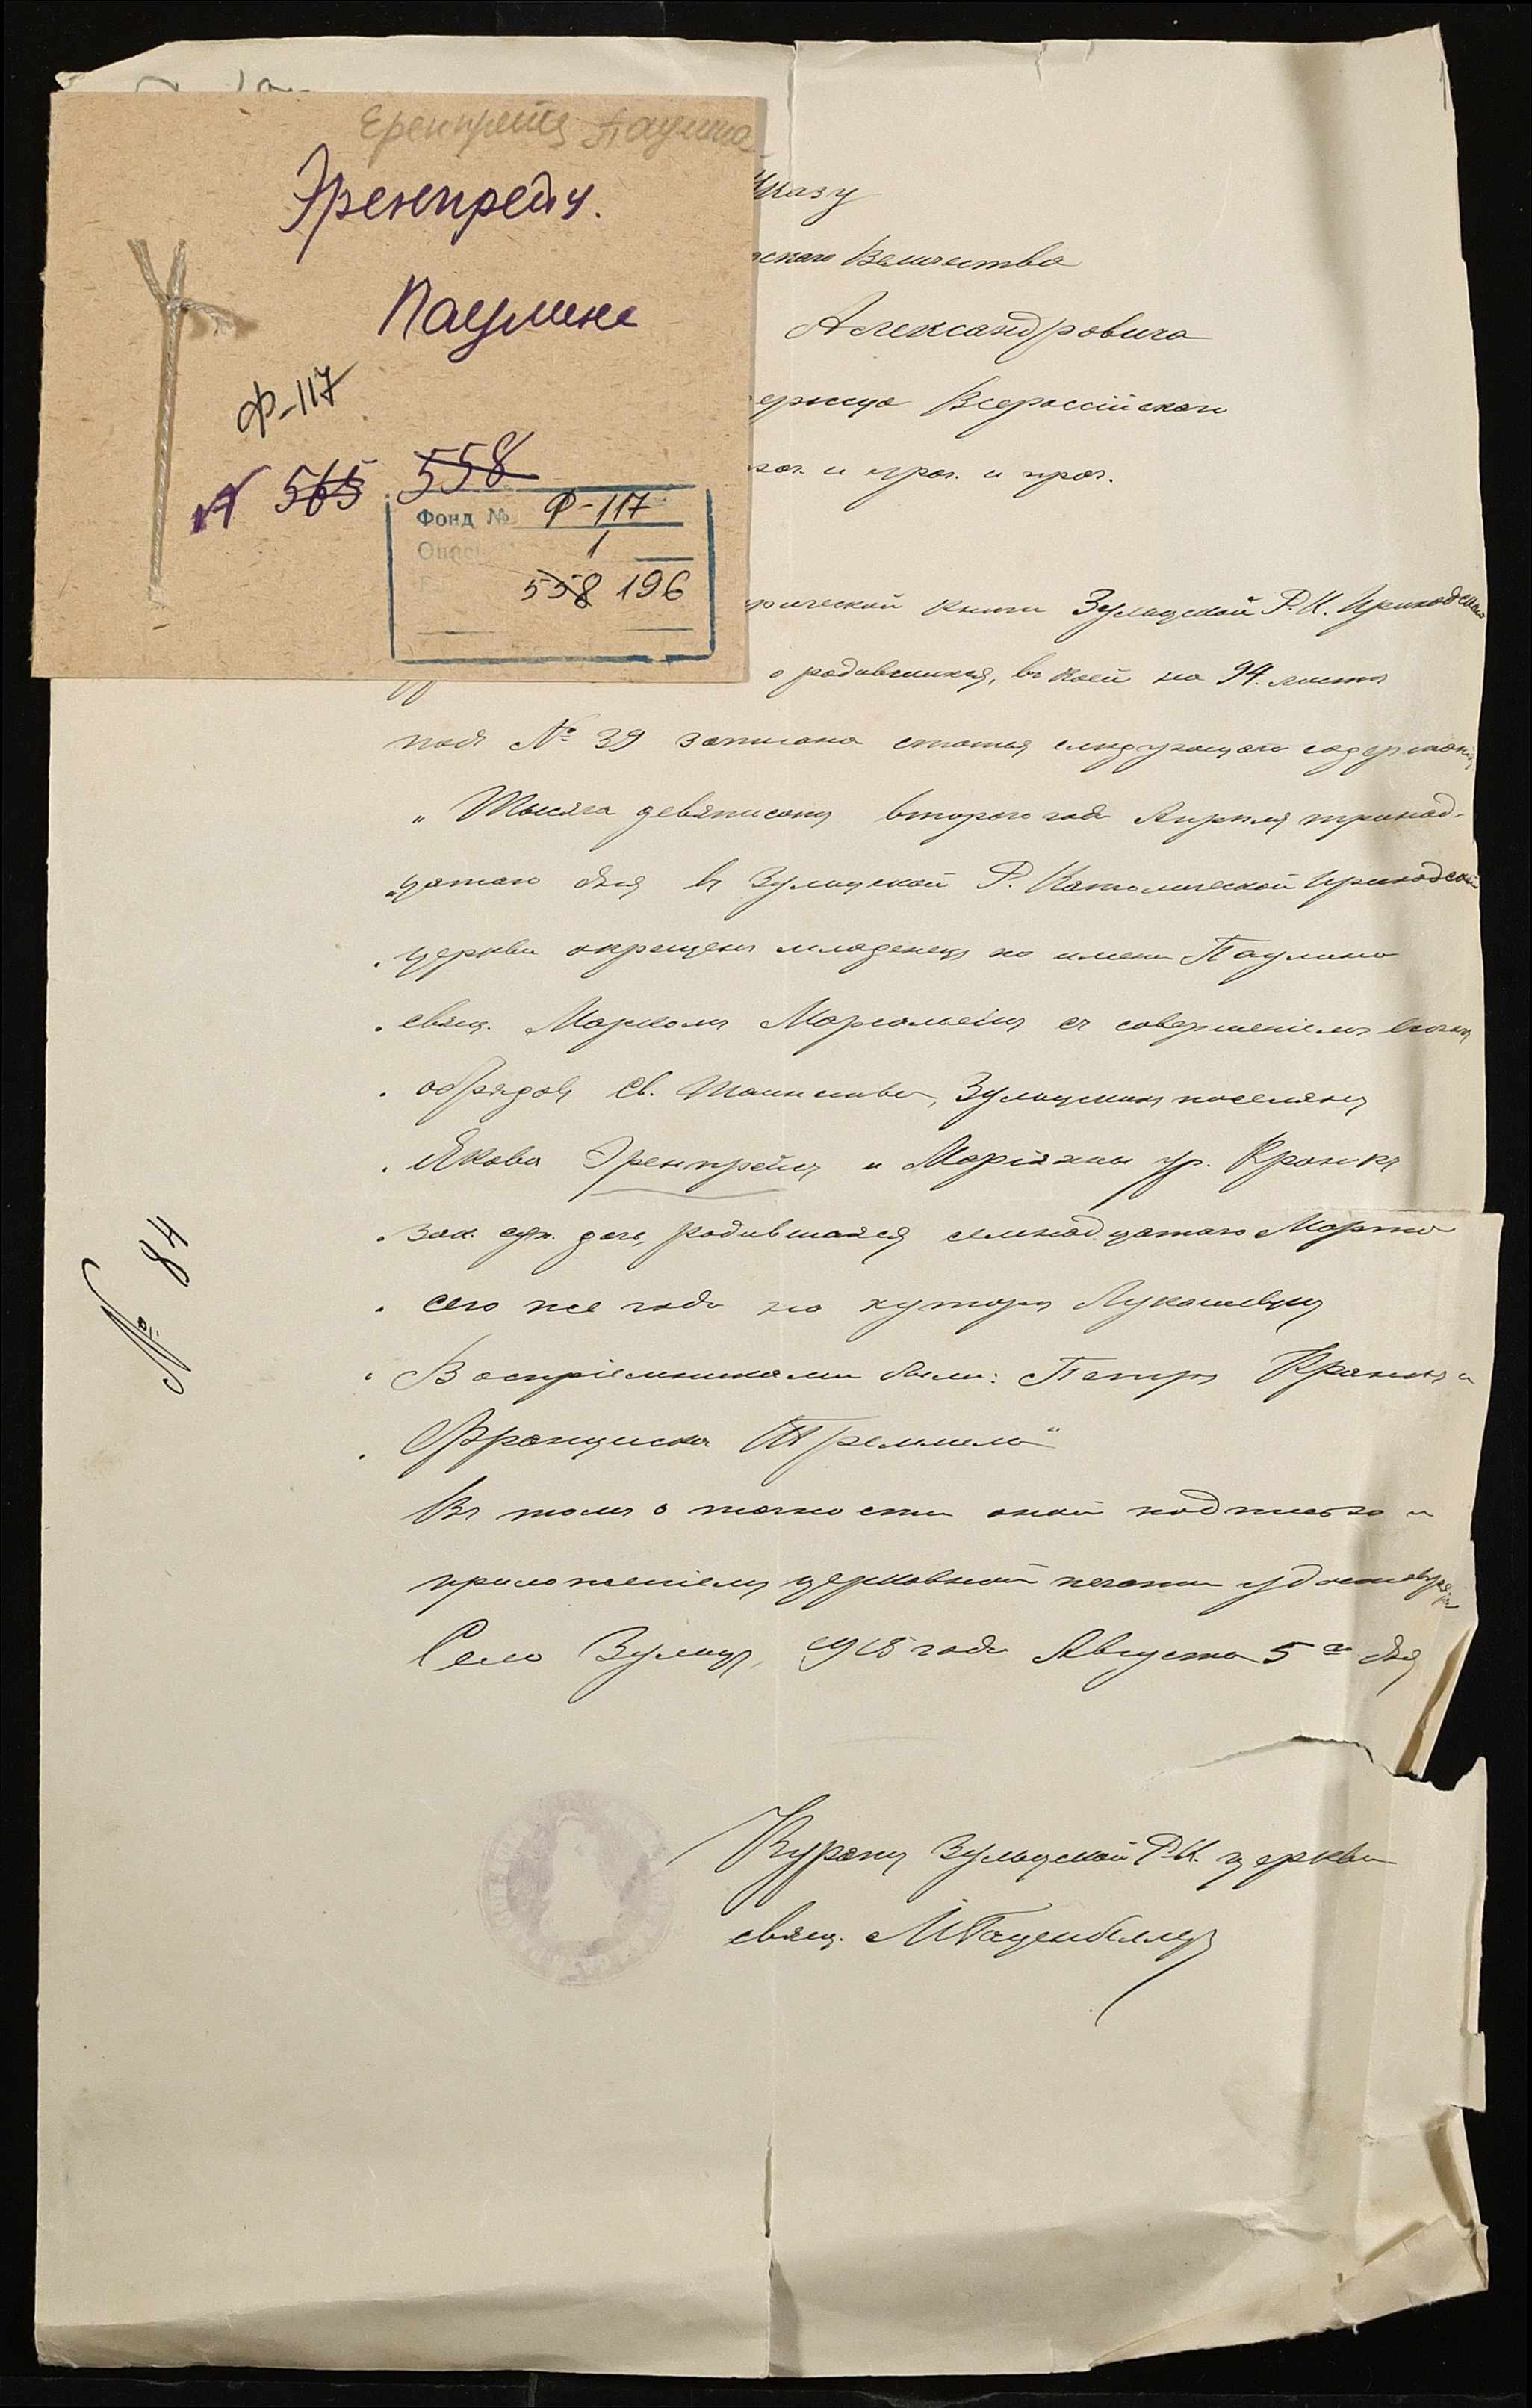 Еренпрейц Паулина
Эренпрейч.
Паулине
Ф-117
№ 565 558
Фонд № Ф-117
Опись 1
558 196
Указу
скаго Величества
Александровича
ержца Всероссійскаго
роч. и проч. и проч.
рической книги Зульцской Р. К. Приходской
о родившихся, въ коей на 94. листѣ
подъ № 39 записана статья слѣдующаго содержанія
„Тысяча девятисотъ второго года Апрѣля тринад-
„цатаго дня въ Зульцской Р. Католической приходской
„ церкви окрещенъ младенецъ по имени Паулина
„ свящ. Маркомъ Марсальскимъ съ совершеніемъ всѣхъ
„ обрядовъ Св. Таинства, Зульцскихъ поселянъ
„ Якова Эренпрейсъ и Маріанны ур. Кранкъ
„ зак. суп. дочь, родившаяся семнадцатаго Марта
„ сего же года на хуторѣ Лукашевку
„ Воспріемниками были: Петръ Кранкъ и
„ Франциска Треммель“
Въ томъ о точности оной подписью и
приложеніемъ церковной печати удостовѣряю
Село Зульцъ, 1918 года Августа 5 го дня
№ 84
Куратъ Зульцской Р.К. церкви
свящ.